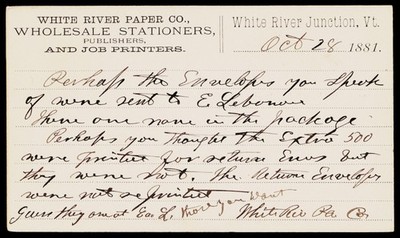 WHITE RIVER PAPER CO.,
WHOLESALE STATIONERS,
PUBLISHERS,
AND JOB PRINTERS.
White River Junction, Vt.
Oct 28 1881.
Perhaps the Envelopes you speak
of were sent to E Lebanon
there one none in the package
Perhaps you thought the Extra 500
were printed for return Envs but
they were not. The Return Envelopes
were not printed
Guess they are at Ea L. those you want
White Riv Pa Co